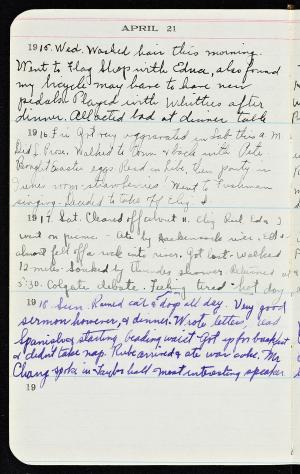 APRIL 21
1915. Wed. Washed hair this morning.
Went to Flag Shop with Edna, also found
my bicycle may have to have new
pedals. Played with Whitties after
dinner. All acted bad at dinner table
1916 Fri Got very aggravated in Lab this A M
Did Prose. Walked to town & back with Pete
Bought Easter eggs Read in Libe, then party in
room strawberries. Went to Freshman
singing. Decided to take off
1917. Sat. Cleared off about 11. Red Eda I
went on picnic. Ate by Hackensack river. Eda
almost fell off a rock into river. Got lost. Walked
12 miles. Soaked by thunder shower. Returned at
5:30. Colgate debate. Feeling tired - hot day
1918 Sun. Rained cats & dogs all day. Very good
sermon however, & dinner. Wrote letters, read
Spanish, starting beading waist. Got up for breakfast
& didn't take nap. Rube arrived & ate war cake. Mr
Chang spoke in Taylor hall & most interesting speaker
19